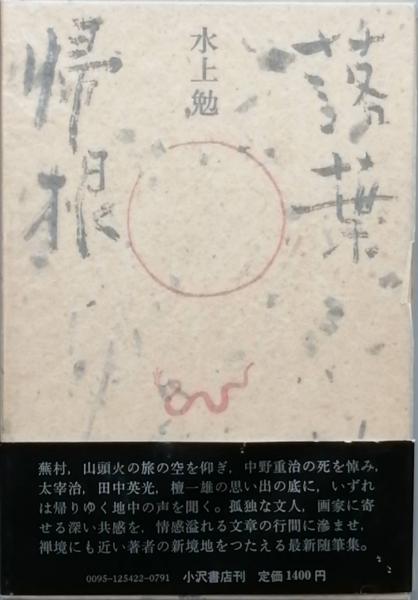 落葉
帰根
水上勉
蕪村，山頭火の旅の空を仰ぎ，中野重治の死を悼み，
太宰治，田中英光，檀一雄の思い出の底に，いずれ
は帰りゆく地中の声を聞く。孤独な文人，画家に寄
せる深い共感を，情感溢れる文章の行間に滲ませ，
禅境にも近い著者の新境地をつたえる最新随筆集。
0095-125422-0791 小沢書店刊 定価1400円